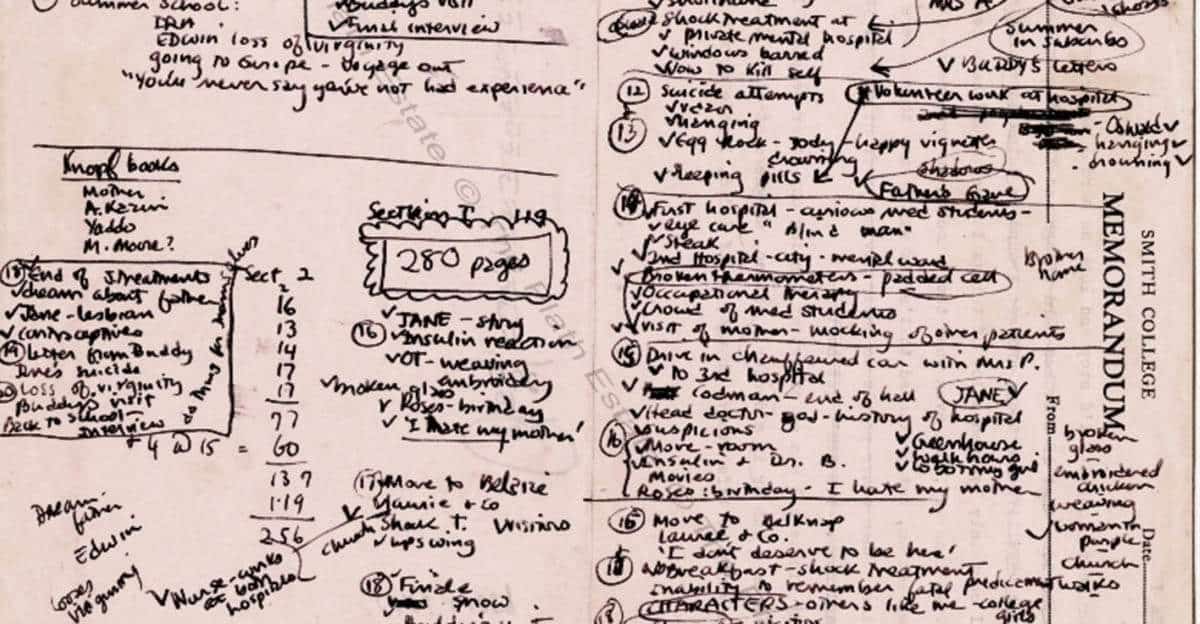 Summer School:
IRA
EDWIN loss of virginity
going to Europe - Voyage out
"You'll never say you've not had experience"
Buddy's visit
✓ Final interview
Knopf books
Mother
A. Kazin
Yaddo
M. Moore?
End of S. treatments
✓ dream about father
✓ Jane - lesbian
✓ contraceptives
(19) Letter from Buddy
Jane's suicide
Loss of virginity
Buddy's visit
Back to school -
Interview
Sect. 2
16
13
14
17
17
77
+ 4 @ 15 = 60
137
119
256
Dream
father
Edwin
loses
virginity
✓ Nurse - works
at own
hospital
Section I 119
280 pages
✓ JANE - story
(16) ✓ Insulin reaction
✓ OT - weaving
embroidery
✓ broken glass
✓ Roses - birthday
✓ 'I hate my mother'
(17) Move to Belsize
& Co
Shock T. visitors
✓ upswing
(18) ✓ Finale
snow
Shock treatment at
✓ private mental hospital
✓ windows barred
✓ How to kill self
summer
in suburbs
✓ Buddy's letters
(12) Suicide attempts
✓ razor
✓ hanging
(13)
✓ Egg Rock - Jody - happy vignettes
drowning
✓ sleeping pills
Volunteer work at hospital
- hanging ✓
- drowning ✓
shadows
Father's Grave
(14) ✓ First hospital - curious med students -
✓ eye care "Blind man"
✓ Steak
✓ 2nd Hospital - city - mental ward
Broken thermometers - padded cell
✓ Occupational therapy
✓ Crowd of med students
✓ visit of mother - mocking of other patients
(15) Drive in chauffeured car with Mrs P.
✓ to 3rd hospital
✓ Codman - end of hall
JANE ✓
✓ Head doctor - god - history of hospital
✓ suspicions
(16) ✓ Move - room
✓ Insulin & Dr. B.
Movies
Roses: birthday - I hate my mother
✓ Greenhouse
✓ walk hours
✓ Lobotomy girl
Move to Belknap
Laurel & Co.
'I don't deserve to be here'
✓ Breakfast - shock treatment
inability to remember fatal predicament
CHARACTERS - others like me - college
girls
SMITH COLLEGE
MEMORANDUM
From
Date
Brother
name
broken
glass
embroidered
chicken
weaving
✓ woman in
purple
church
walks